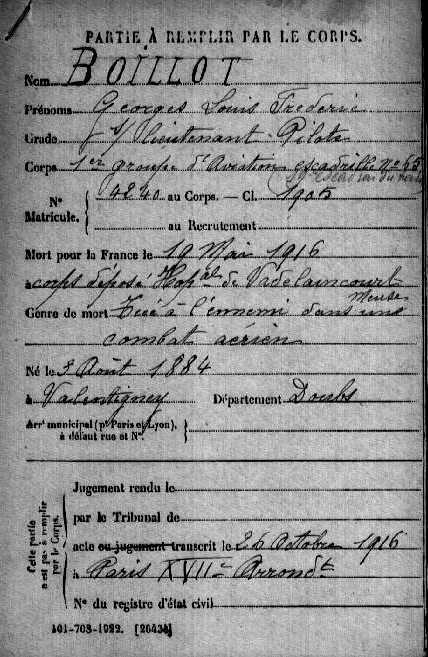 PARTIE À REMPLIR PAR LE CORPS.
Nom BOILLOT
Prénoms Georges Louis Frédéric
Grade S/ Lieutenant Pilote
Corps 1er groupe d'Aviation escadrille No 65
N° Matricule. 4240 au Corps. — Cl. 1905
au Recrutement
Mort pour la France le 19 Mai 1916
à corps déposé Hopal de Vadelaincourt
Meuse
Genre de mort Tué à l'ennemi dans un
combat aérien
Né le 3 Août 1884
à Valentigney Département Doubs
Arrt municipal (pr Paris et Lyon),
à défaut rue et N°.
Cette partie
n'est pas à remplir
par le Corps.
Jugement rendu le
par le Tribunal de
acte ou jugement transcrit le 26 Octobre 1916
à Paris XVIIe Arrondt
N° du registre d'état civil
101-708-1922. [26434]